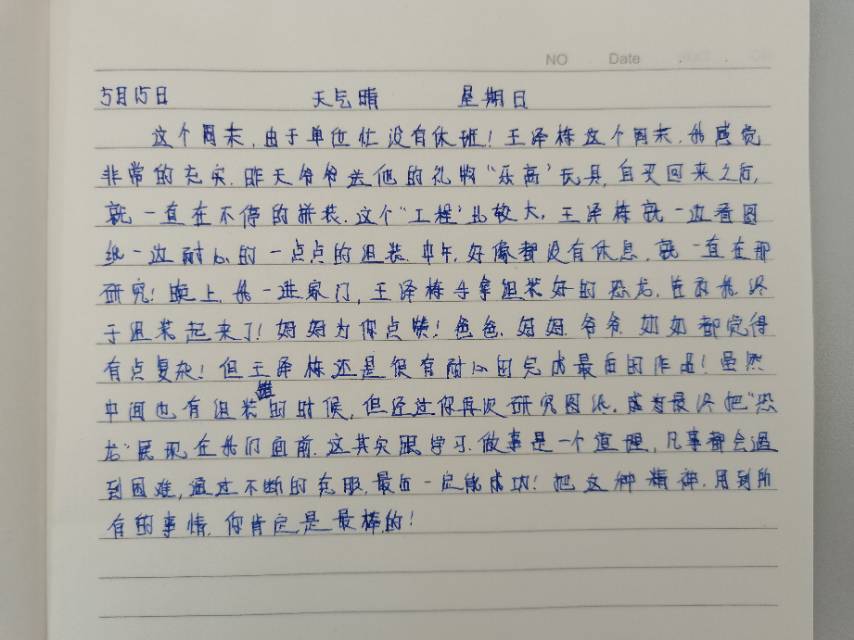 NO Date
5月15日 天气晴 星期日
这个周末,由于单位忙没有休班!王泽栋这个周末,我感觉
非常的充实.昨天爷爷送他的礼物“乐高”玩具,自买回来之后,
就一直在不停的拼装.这个“工程”比较大,王泽栋就一边看图
纸一边耐心的一点点的组装.中午,好像都没有休息,就一直在那
研究!晚上,我一进家门,王泽栋手拿组装好的恐龙,告诉我终
于组装起来了!妈妈为你点赞!爸爸.妈妈.爷爷.奶奶都觉得
有点复杂!但王泽栋还是很有耐心的完成最后的作品!虽然
中间也有组装错的时候,但经过你再次研究图纸.成为最终把“恐
龙”展现在我们面前.这其实跟学习.做事是一个道理,凡事都会遇
到困难,通过不断的克服,最后一定能成功!把这种精神.用到所
有的事情,你肯定是最棒的!